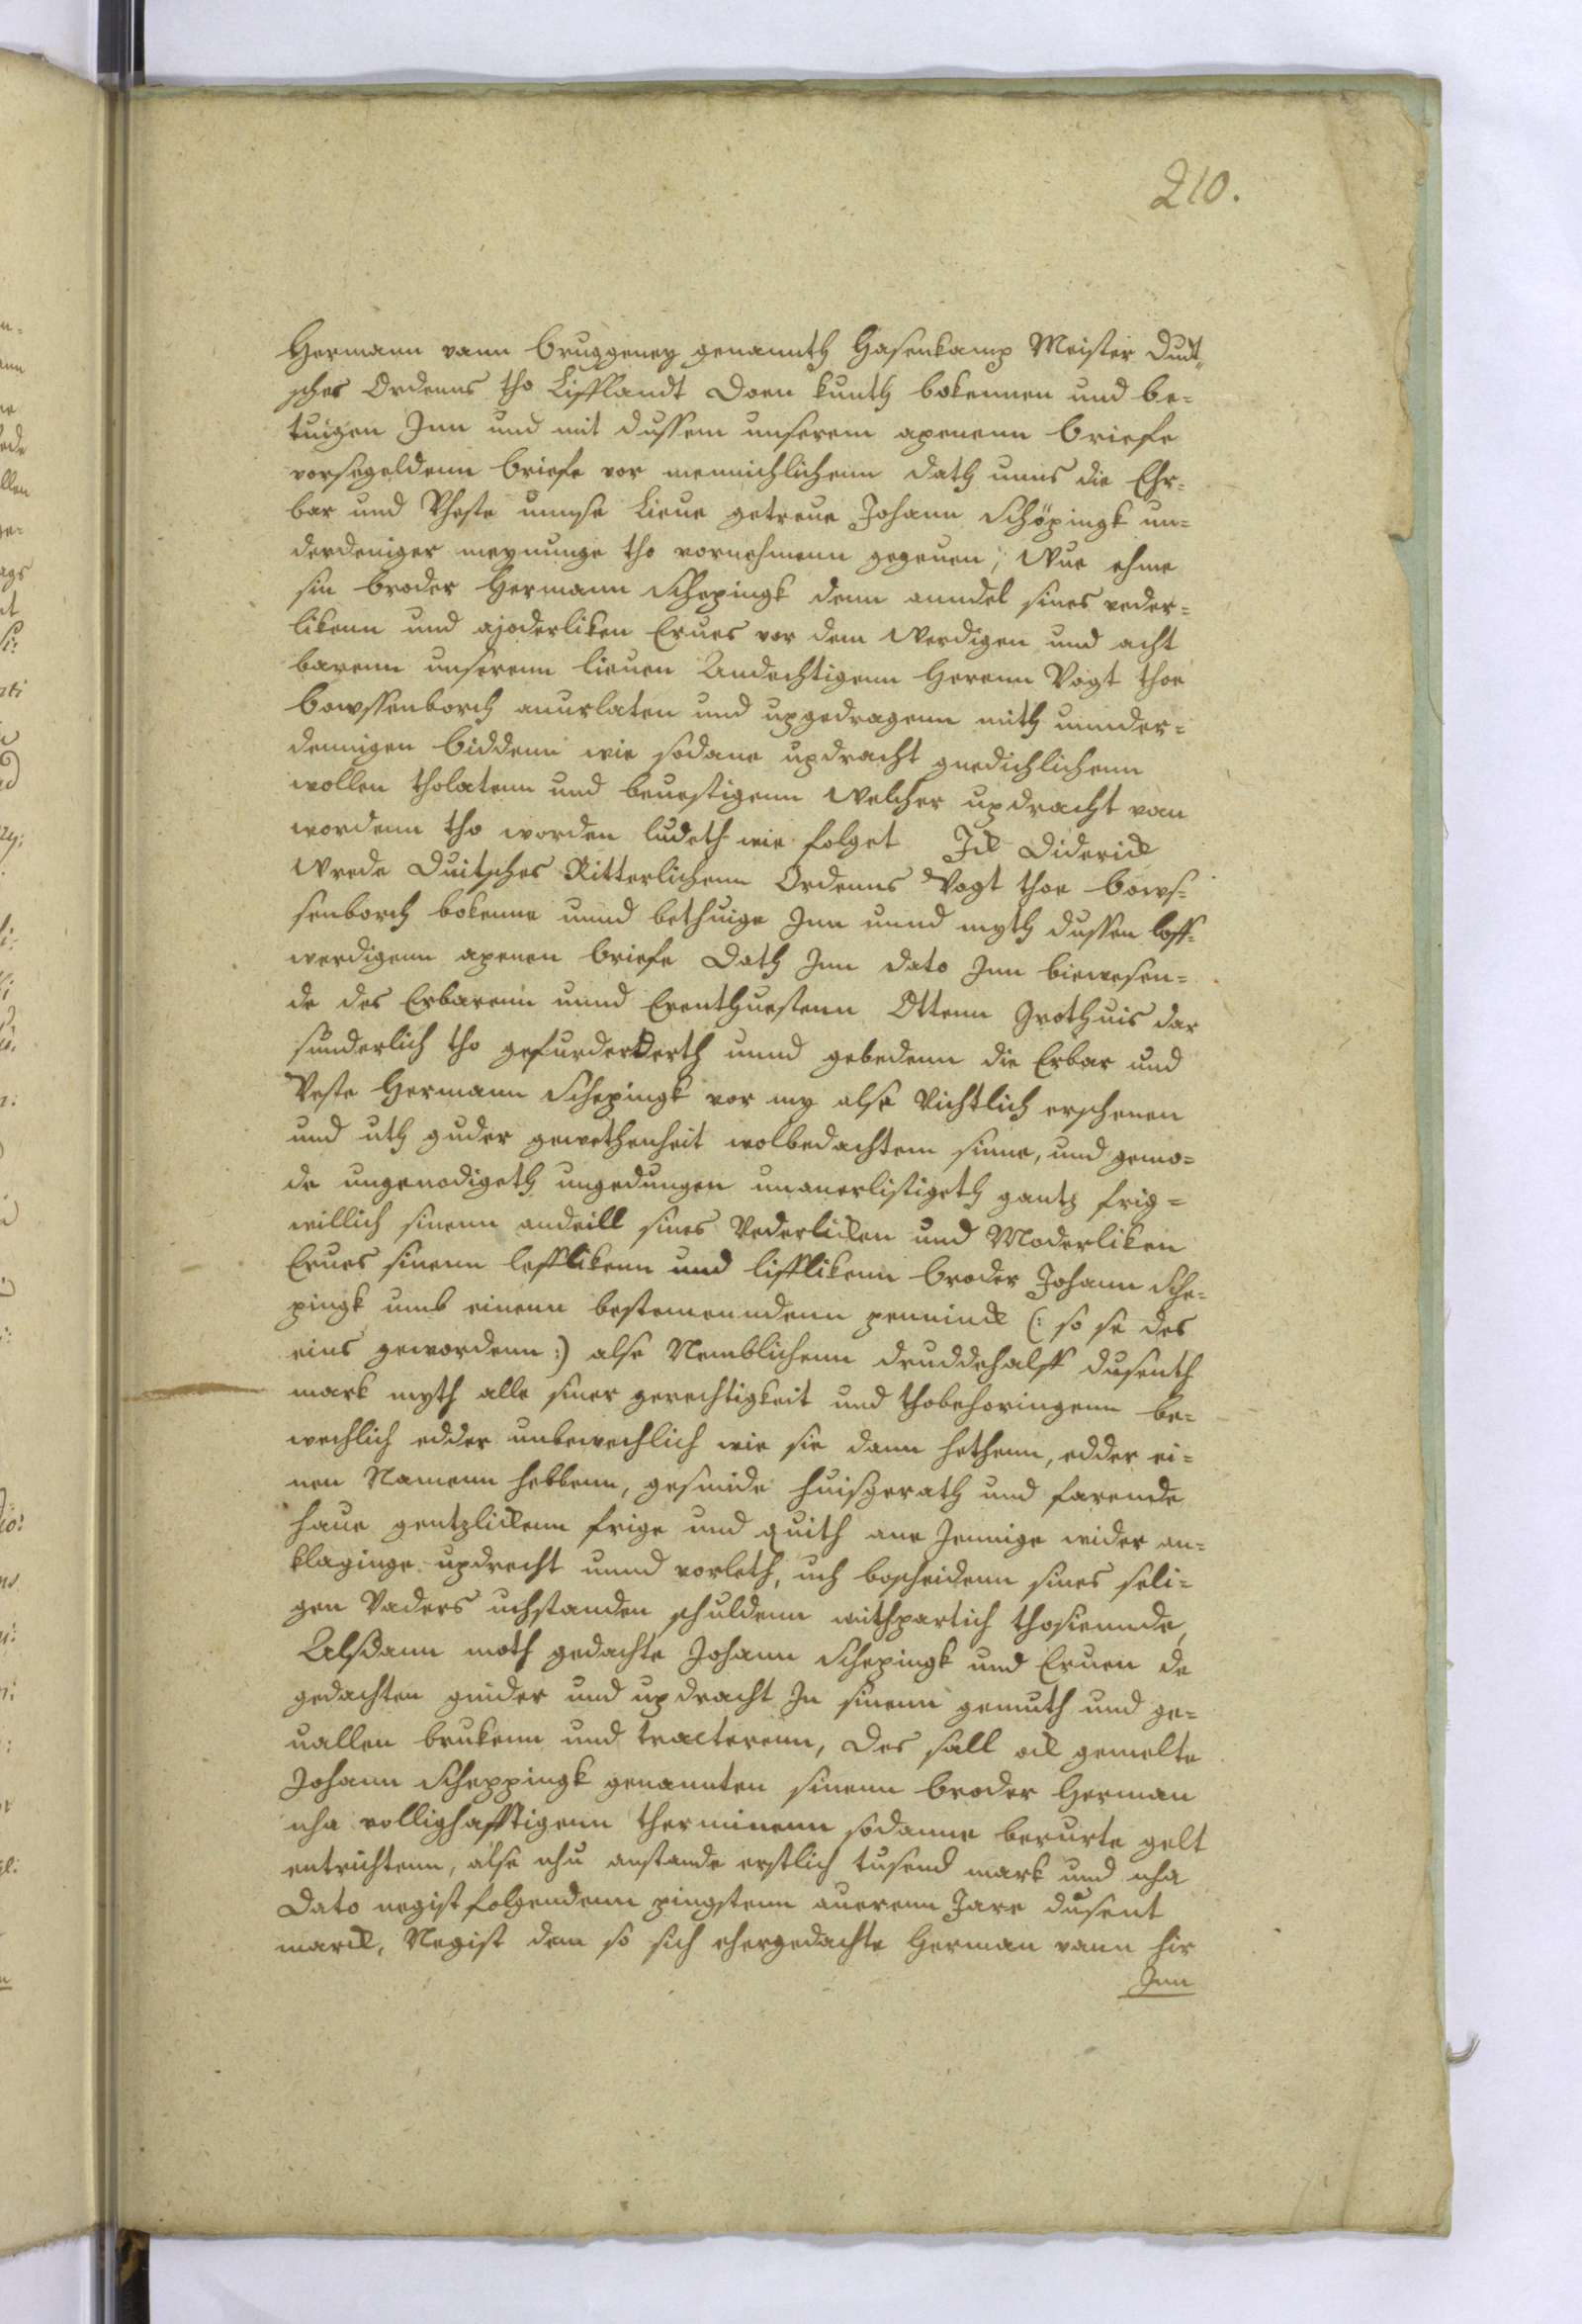 210.
Hermann vann Bruggeney genannth Hasenkamp Meister Dudt-
sches Ordenns tho Lifflandt Doen kunth bokennen und be-
tuigen Inn und mit dussem unserem apenenn briefe
vorsegeldenn briefe vor mennichlichenn dath unns die Ehr-
bar und Vheste unnse Lieue getreue Johann Schöpingk un-
derdeniger meynunge tho vornehmenn gegeuen, Wue ehme
sin broder Hermann Schepingk denn anndel sines veder-
likenn und moderliken Erues vor dem Werdigen und acht
barenn unserenn lieuen Andechtigenn Herenn Vogt thor
Bowssenborch auurlaten und upgedragenn mith unnder-
dennigen biddenn wie sodane updracht gnedichlichenn
wollen tholatenn und beuestigenn Welcher updracht van
wordenn tho worden ludeth wie folget Ick Diderick
Wrede Duitsches Ritterlichenn Ordenns Vogt thor Bows-
senborch bokenne unnd bethuige Inn unnd myth dussen loff-
werdigenn apenen briefe Dath Inn dato Inn biewesen-
de des Erbarenn unnd Erenthuestenn Ottenn Grothuis dar
sunderlich tho gefurderderth unnd gebedenn die Erbar und
Veste Hermann Schepingk vor my alse Richtlich erschenen
und uth guder gewethenheit wolbedachtem sinne, und gemo-
de ungenodigeth ungedungen unauerlistigeth gantz frig-
willich sinenn andeill sines Vederlicken und Moderliken
Erues sinenn lefflikenn und lifflikenn broder Johann Sche-
pingk umb einenn bestemenndenn pennink (: so se des
eins gewordenn :) alse Nemblichenn druddehalff dusenth
mark myth alle siner gerechtigkeit und thobehoringenn be-
wechlich edder unbewechlich wie sie dann hethenn, edder ei-
nen Namenn hebbenn, gesmide huisgerath und farende
haue gentzlickenn frige und quith ane Jennige wider an-
klaginge updrecht unnd vorleth, uch boscheidenn sines seli-
gen Vaders uchstanden schuldenn mithpartich thosiennde,
Alsdann moth gedachte Johann Schepingk und Eruen de
gedachten guider und updracht In sinenn gemuth und ge-
uallen brukenn und tracterenn, Des sall ock gemelte
Johann Scheppingk genannten sinenn broder Herman
nha vollighafftigenn therminenn sodanne berurte gelt
entrichtenn, alse nhu anstande erstlich tusend mark und nha
Dato negist folgendenn pingstenn auerenn Jare dusent
marck, Negist dem so sich ehergedachte Herman vann hir
Inn